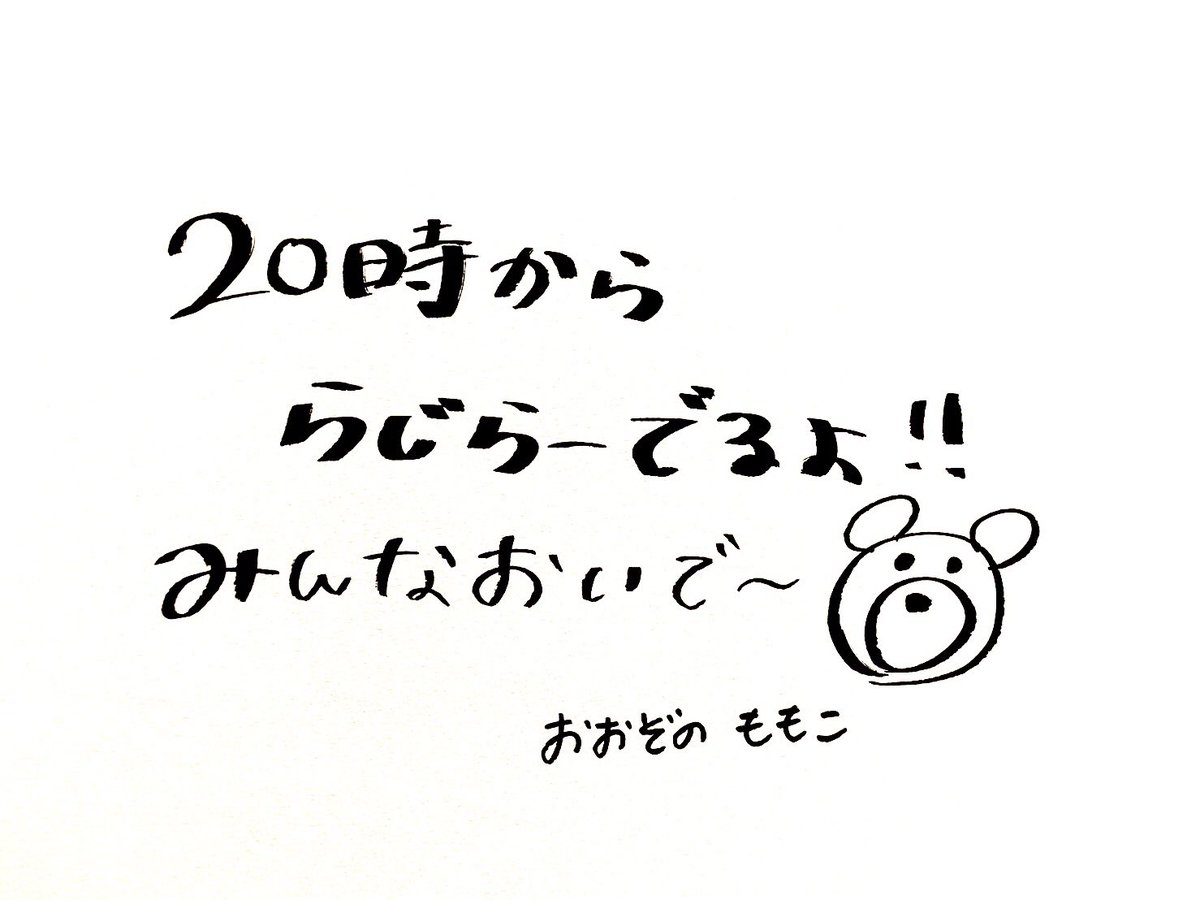 20時から
らじらーでるよ!!
みんなおいで〜
おおぞの ももこ